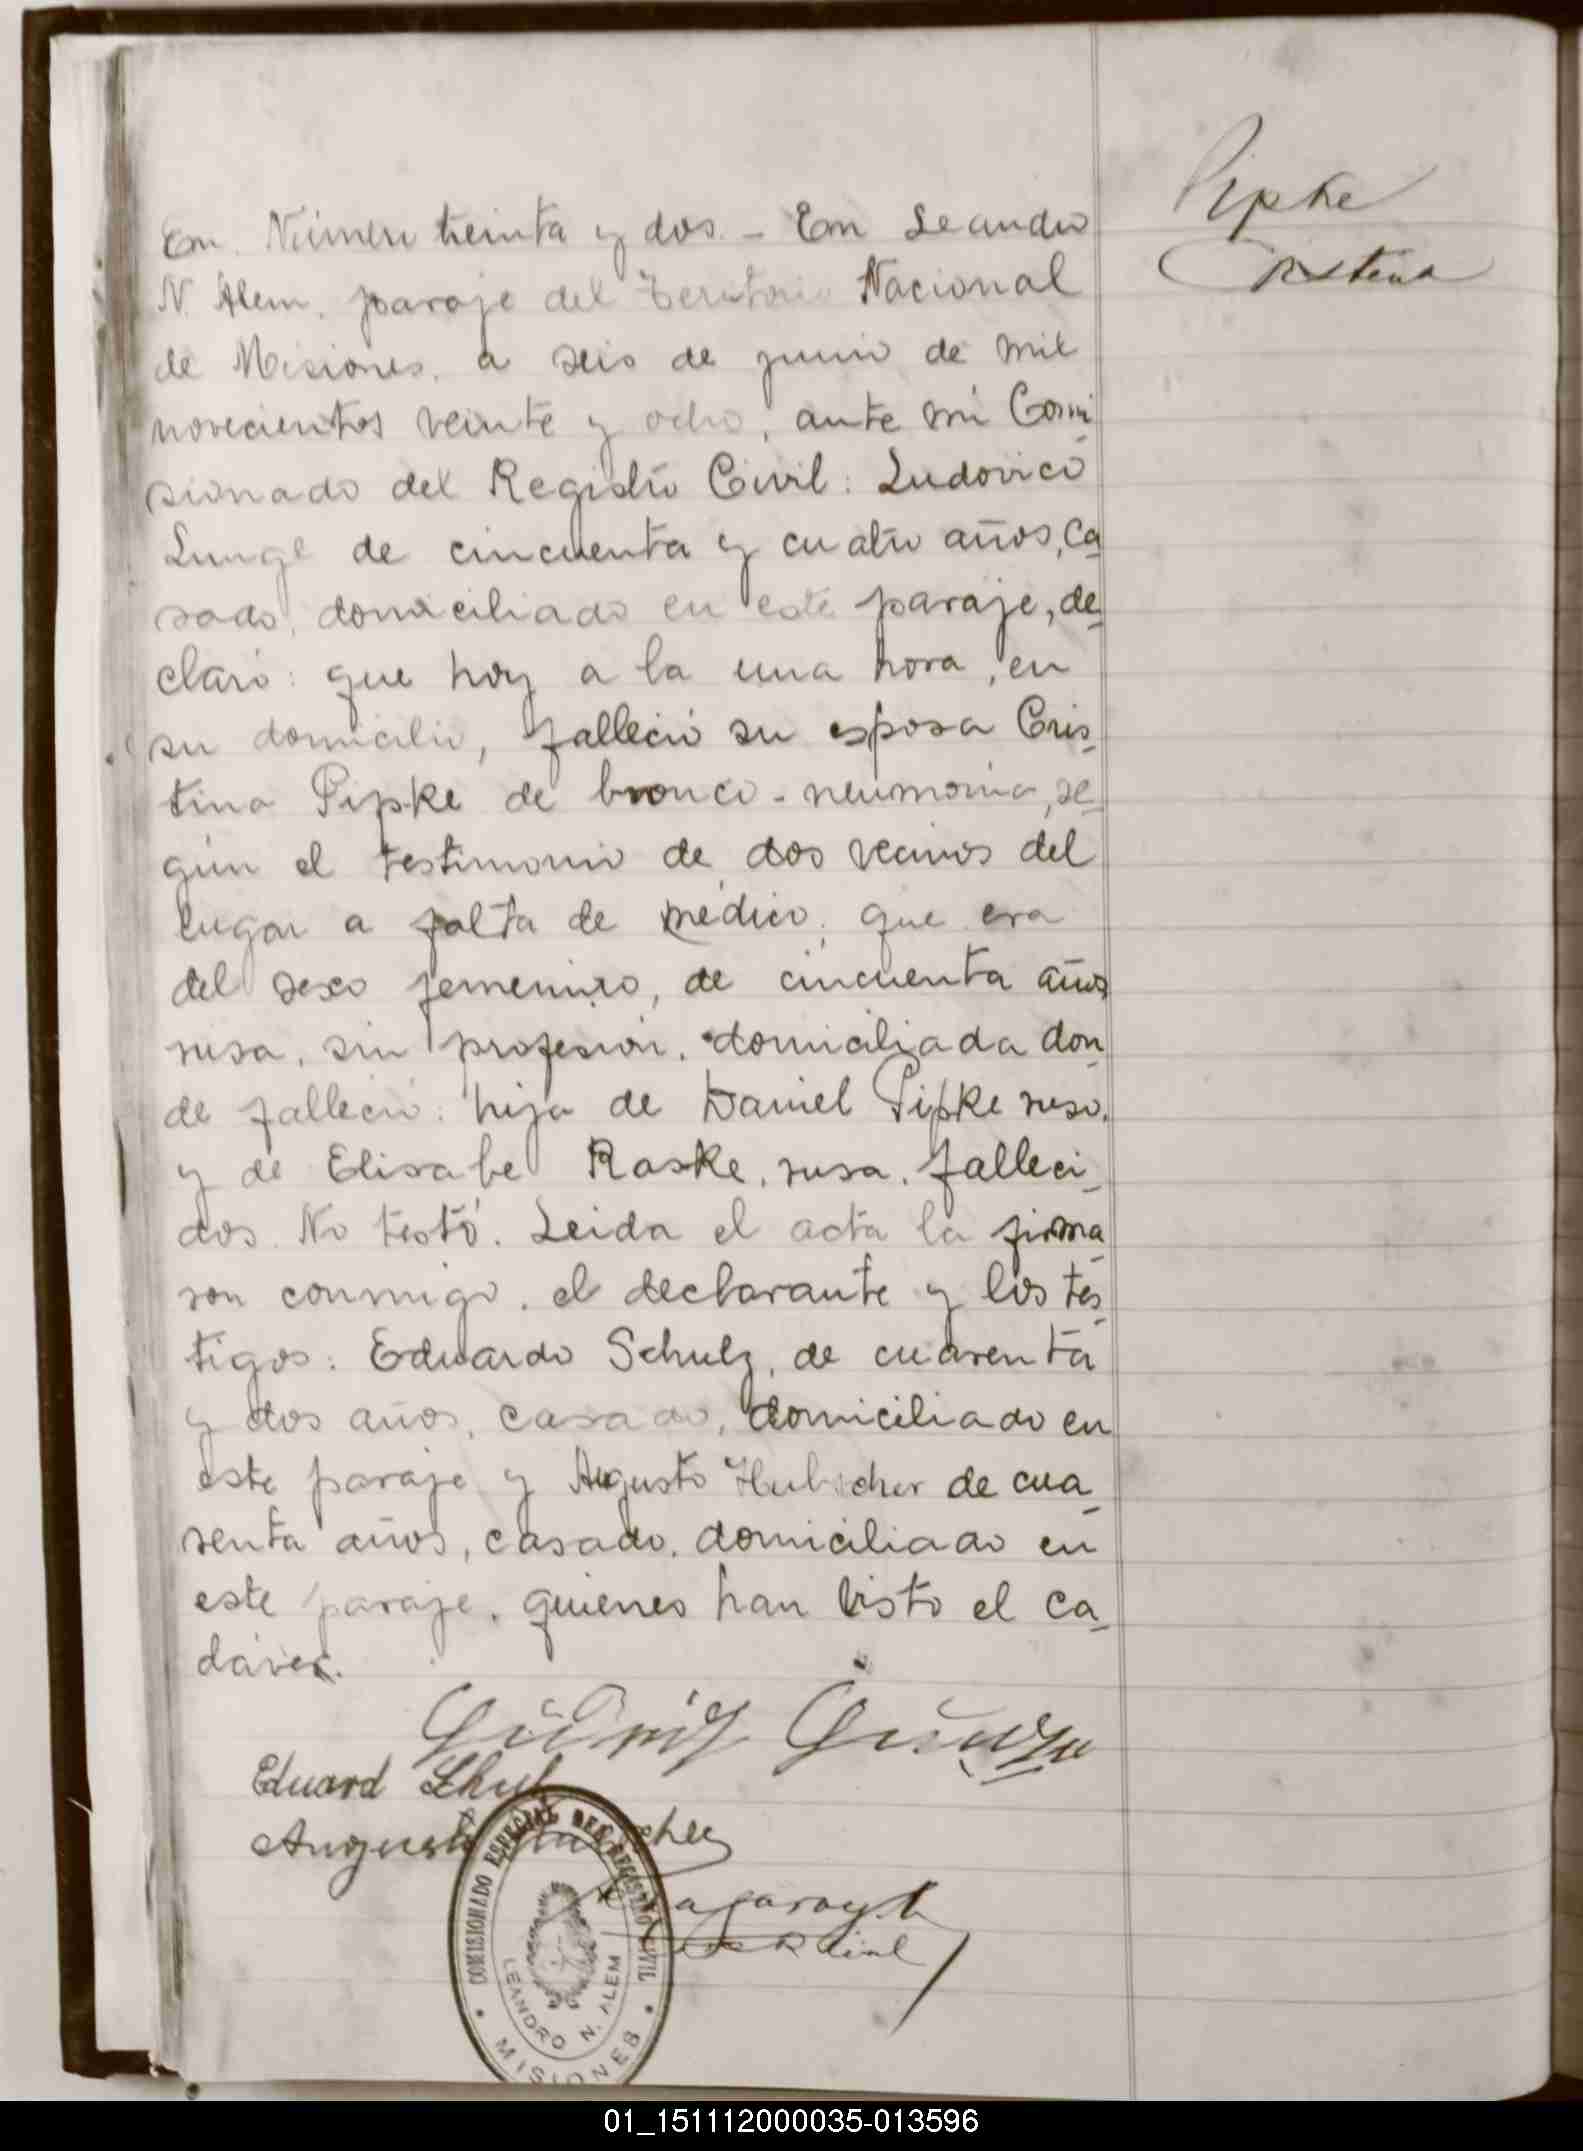 Pipke
Cristina
En. Número treinta y dos. - En Leandro
N. Alem. paraje del Territorio Nacional
de Misiones. a seis de junio de mil
novecientos veinte y ocho, ante mi Comi
sionado del Registro Civil: Ludovico
Lunge de cincuenta y cuatro años, ca
sado, domiciliado en este paraje, de
claró: que hoy a la una hora, en
su domicilio, falleció su esposa Cris
tina Pipke de bronco-neumonia, se
gún el testimonio de dos vecinos del
lugar a falta de médico; que era
del sexo femenino, de cincuenta años
rusa, sin profesión, domiciliada don
de falleció: hija de Daniel Pipke ruso,
y de Elisabe Raske, rusa, falleci
dos. No testó. Leida el acta la firma
ron conmigo, el declarante y los tes
tigos: Eduardo Schulz, de cuarenta
y dos años, casado, domiciliado en
este paraje y Augusto Hubscher de cua
renta años, casado, domiciliado en
este paraje, quienes han visto el ca
dáver.
Eduard
August
COMISIONADO ESPECIAL DEL REGISTRO CIVIL
LEANDRO N. ALEM
MISIONES
01_151112000035-013596